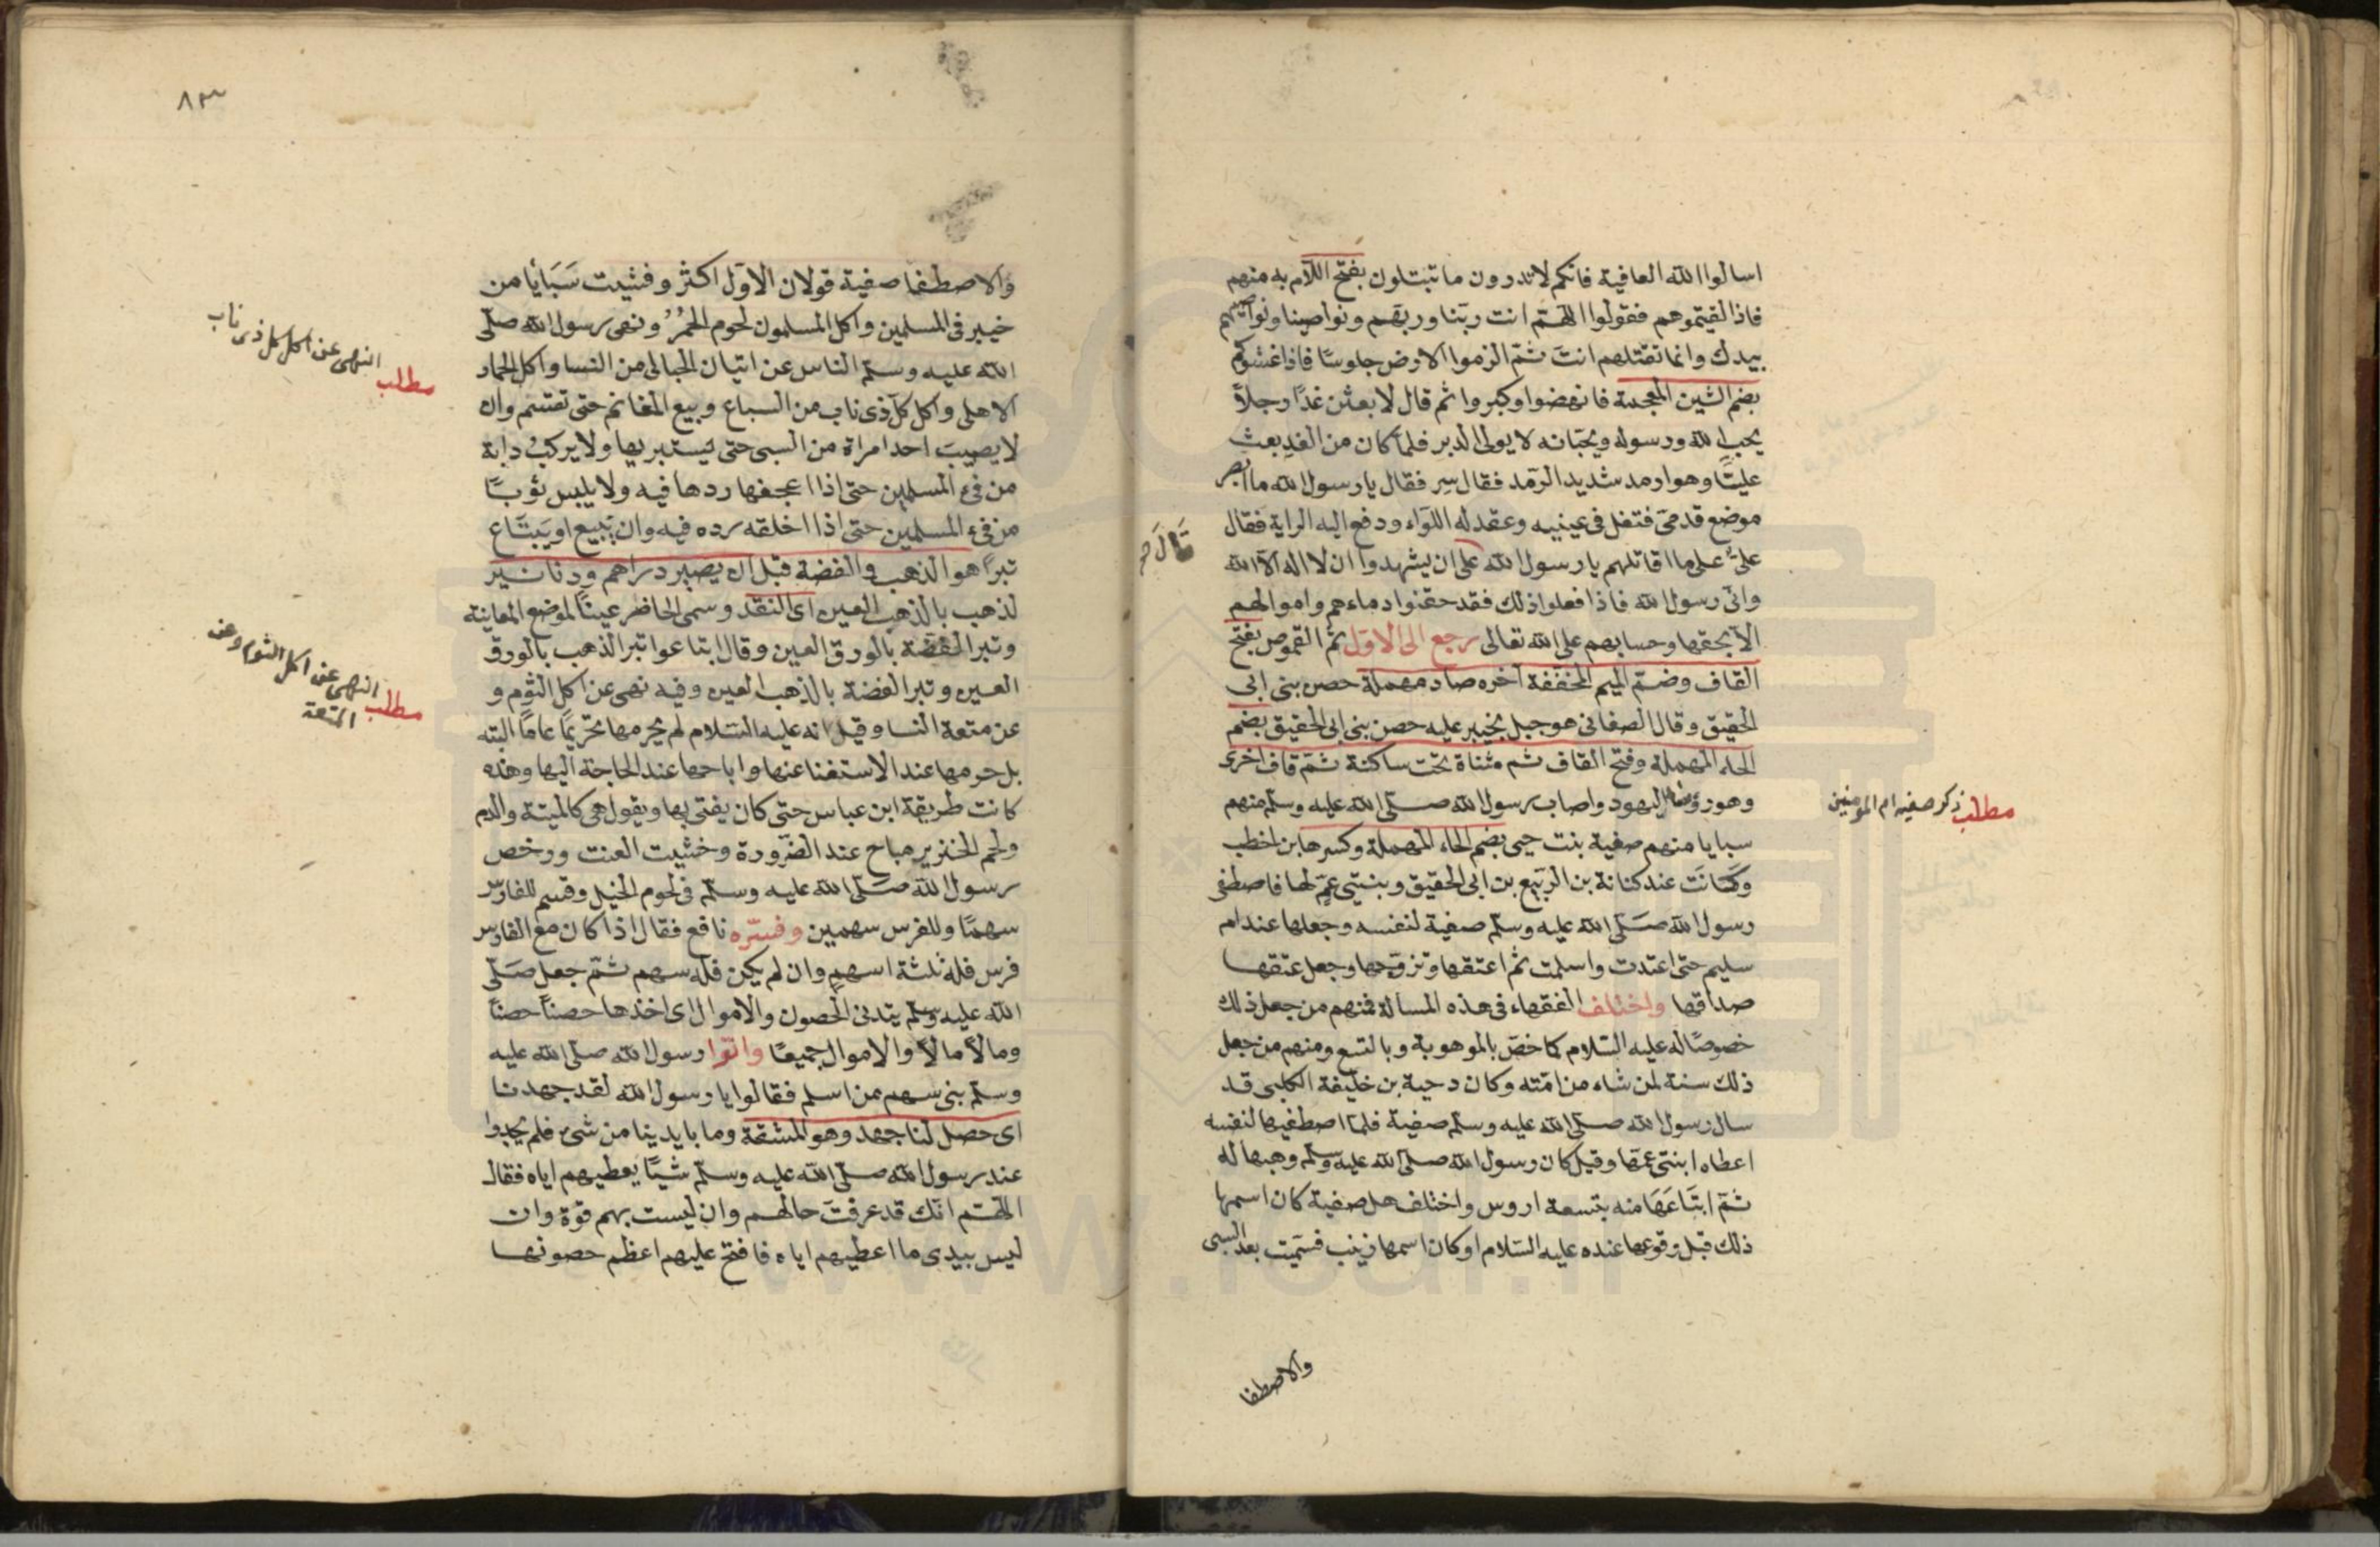 اسالوا الله العافية فانكم لا تدرون ما تبتلون بفتح اللام به منهم
فاذا لقيتموهم فقولوا اللهم انت ربنا وربهم ونواصينا ونواصيهم
بيدك وانما تقتلهم انت ثم الزموا الارض جلوسًا فاذا غشوكم
بضم الشين المعجمة فانهضوا وكبروا ثم قال لابعثن غدًا رجلاً
يحب الله ورسوله ويحبانه لا يولى الدبر فلما كان من الغد بعث
عليًا وهو ارمد شديد الرمد فقال سِر فقال يا رسول الله ما ابصر
موضع قدمىّ فتفل فى عينيه وعقد له اللواء ودفع اليه الراية فقال
علىّ على ما اقاتلهم يا رسول الله على ان يشهدوا ان لا اله الا الله
قال صح
وانى رسول الله فاذا فعلوا ذلك فقد حقنوا دماءهم واموالهم
الا بحقها وحسابهم على الله تعالى رجع الى الاول ثم القموص بفتح
القاف وضم الميم المخففة آخره صاد مهملة حصن بنى ابى
الحقيق وقال الصغانى هو جبل بخيبر عليه حصن بنى ابى الحقيق بضم
الحاء المهملة وفتح القاف ثم مثناة تحت ساكنة ثم قاف اخرى
وهو رؤسا اليهود واصاب رسول الله صلى الله عليه وسلم منهم
مطلب ذكر صفيه ام المومنين
سبايا منهم صفية بنت حيى بضم الحاء المهملة وكسرها بن اخطب
وكانَت عند كنانة بن الربيع بن ابى الحقيق وبنتى عمّ لها فاصطفى
رسول الله صلى الله عليه وسلم صفية لنفسه وجعلها عند ام
سليم حتى اعتدت واسلمت ثم اعتقها وتزوجها وجعل عتقها
صداقها واختلف الفقهاء فى هذه المسالة فمنهم من جعل ذلك
خصوصًا له عليه السلام كما خصّ بالموهوبة وبالتسع ومنهم من جعل
ذلك سنة لمن شاء من امته وكان دحية بن خليفة الكلبى قد
سال رسول الله صلى الله عليه وسلم صفية فلما اصطفيها لنفسه
اعطاه ابنتى عمّها وقيل كان رسول الله صلى الله عليه وسلم وهبها له
ثم ابتَاعَهَا منه بتسعة اروس واختلف هل صفية كان اسمها
ذلك قبل وقوعها عنده عليه السلام او كان اسمها زينب فسميت بعد السبى
والاصطفا
٨٣
والاصطفا صفية قولان الاول اكثر وفشيت سَبَايَا من
خيبر فى المسلمين واكل المسلمون لحوم الحمُرُ ونهى رسول الله صلى
الله عليه وسلم الناس عن اتيان الحبالى من النسا واكل الحمار
مطلب النهى عن اكل كل ذى ناب
الاهلى واكل كلّ ذى ناب من السباع وبيع المغانم حتى تقتسم وان
لا يصيبَ احد امراة من السبى حتى يستبريها ولا يركبُ دابة
من فىء المسلمين حتى اذا اعجفها ردها فيه ولا يلبس ثوبًا
من فىء المسلمين حتى اذا اخلقه رده فيه وان يَبيع او يَبتَاع
تبرًا هو الذهب والفضة قبل ان يصير دراهم ودنانير
لذهب بالذهب العين اى النقد وسمى الحاضر عينًا لموضع المعاينة
وتبر الفضة بالورق العين وقال ابتاعوا تبر الذهب بالورق
العين وتبر الفضة بالذهب العين وفيه نهى عن اكل الثوم و
مطلب النهى عن اكل الثوم وعن
المتعة
عن متعة النسا وقيل انه عليه السلام لم يحرمها تحريمًا عامًا البته
بل حرمها عند الاستغنا عنها واباحها عند الحاجة اليها وهذه
كانت طريقة ابن عباس حتى كان يفتى بها ويقول هى كالميتة والدم
ولحم الخنزير مباح عند الضرورة وخشيت العنت ورخص
رسول الله صلى الله عليه وسلم فى لحوم الخيل وقسم للفارس
سهمًا وللفرس سهمين وفسّره نافع فقال اذا كان مع الفارس
فرس فله ثلثة اسهمٍ وان لم يكن فله سهم ثم جعل صلى
الله عليه وسلم يتدنى الحصون والاموال اى اخذها حصنًا حصنًا
ومالاً مالاً والاموال جميعًا واتوا رسول الله صلى الله عليه
وسلم بنى سهم ممن اسلم فقالوا يا رسول الله لقد جهدنا
اى حصل لنا جهد وهو المشقة وما بايدينا من شىء فلم يجدوا
عند رسول الله صلى الله عليه وسلم شيًا يعطيهم اياه فقال
اللهم انك قد عرفتَ حالهم وان ليست بهم قوة وان
ليس بيدى ما اعطيهم اياه فافتح عليهم اعظم حصونها